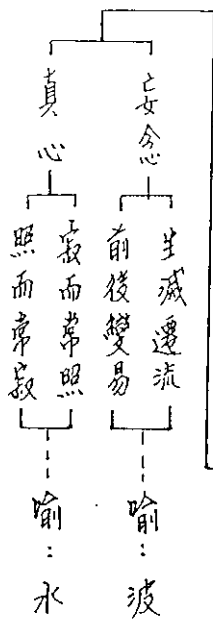 妄念
生滅遷流
前後變易
喻：波
真心
寂而常照
照而常寂
喻：水